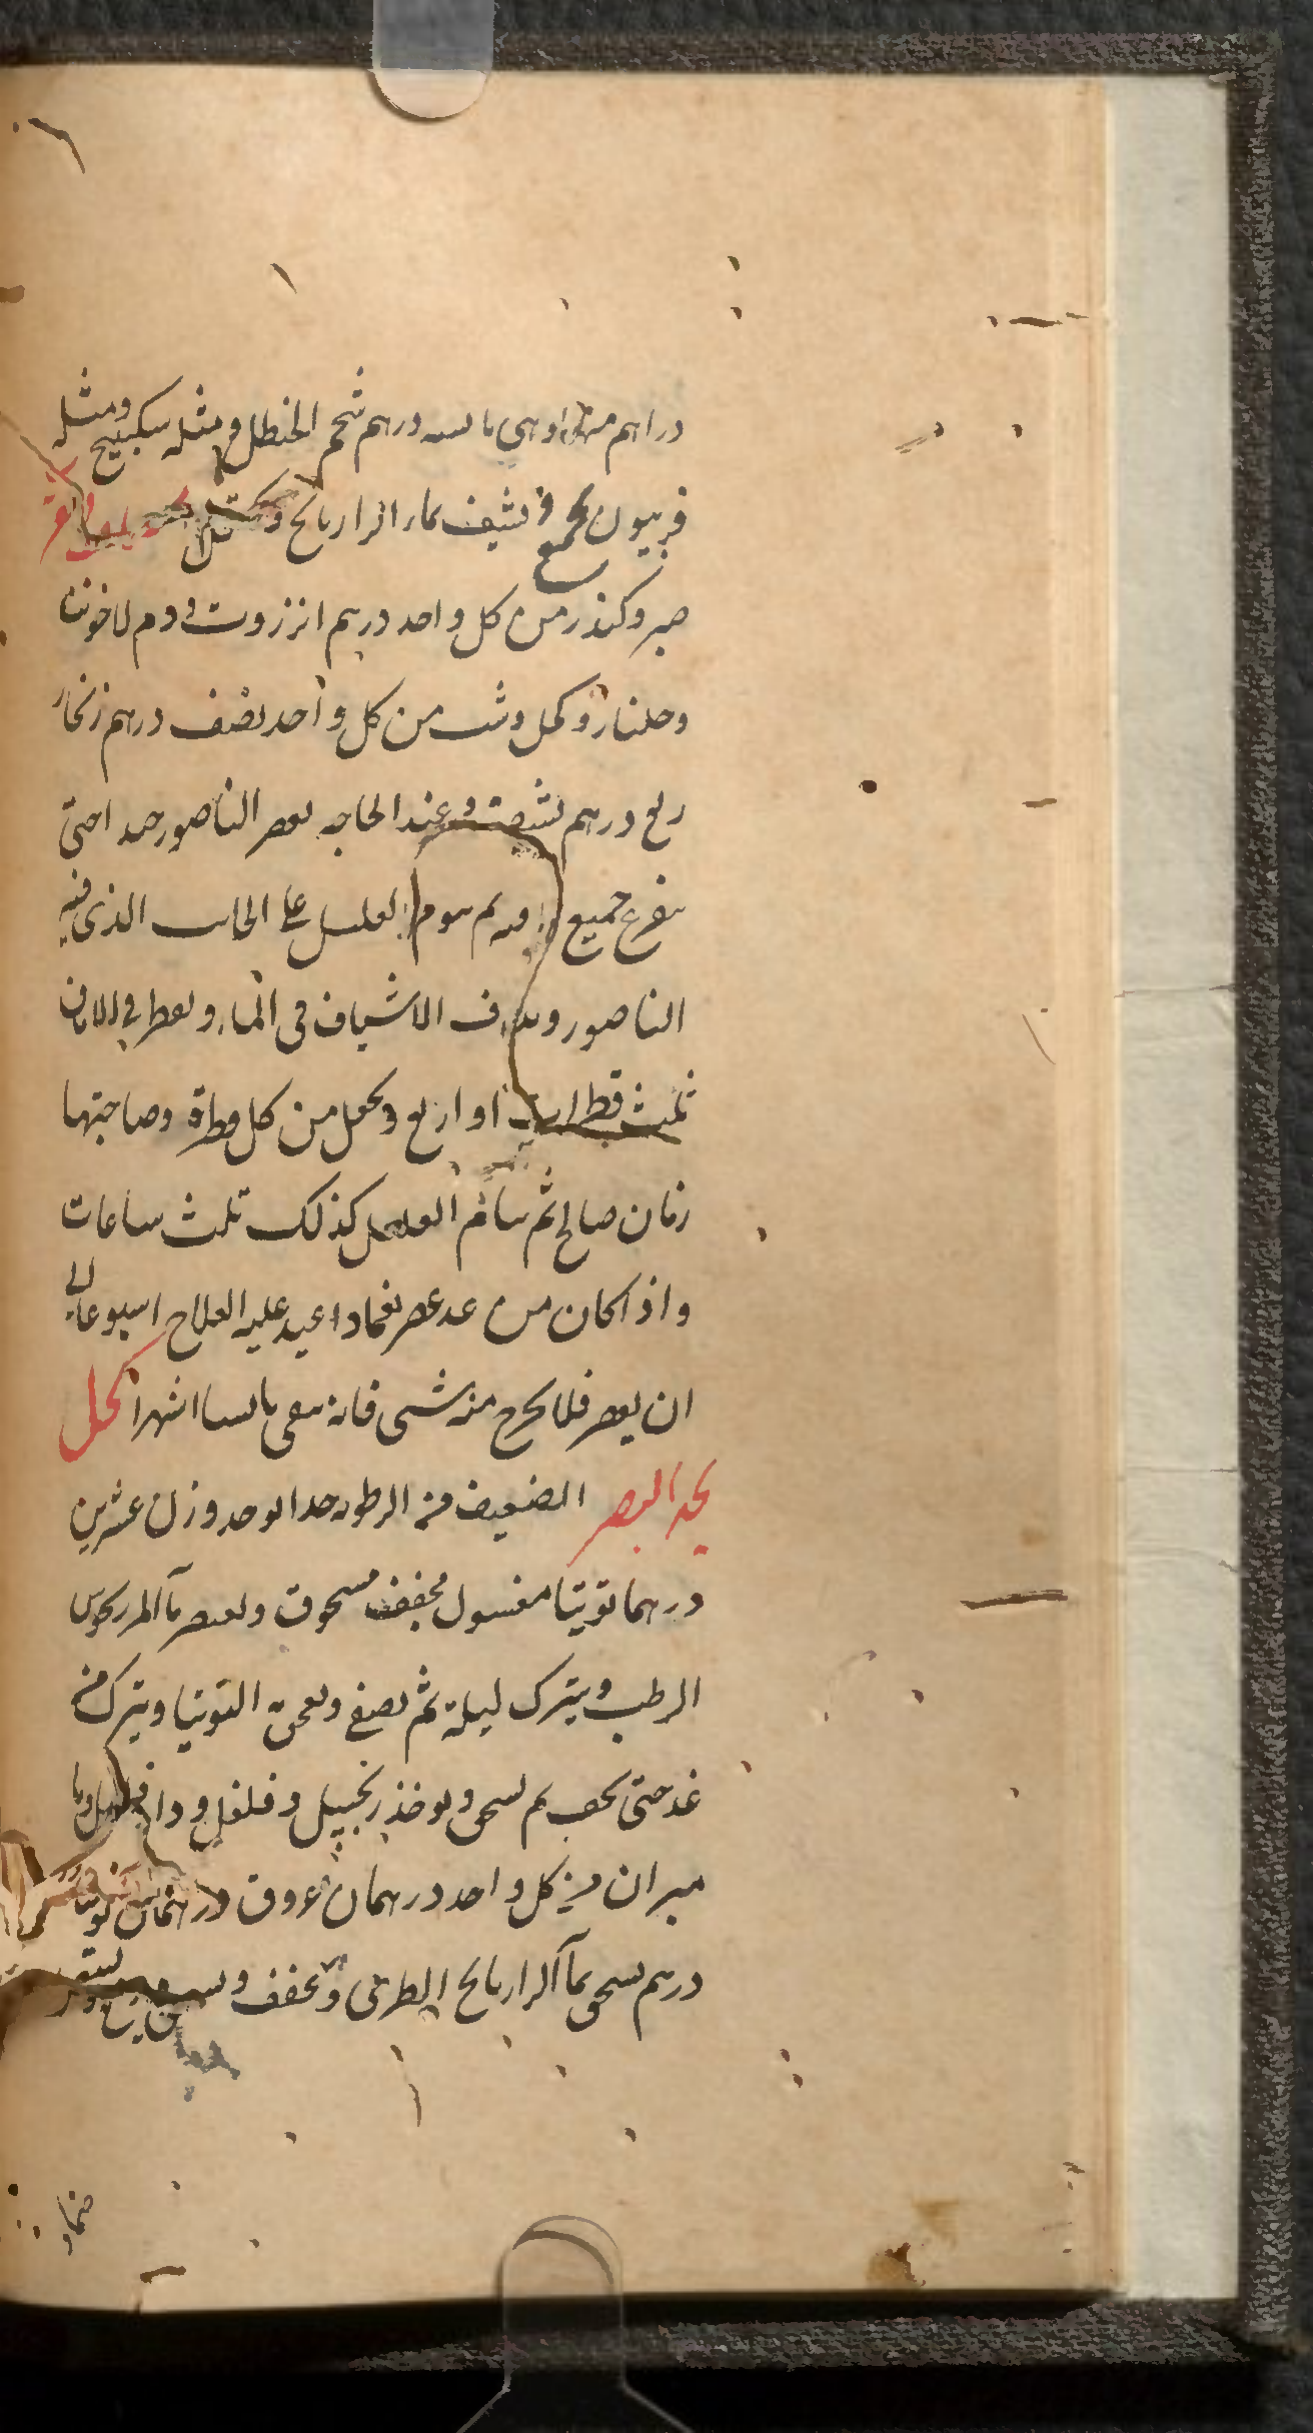 دراهم درهم شحم الحنظل ومثله سكبينج ومثله
فربيون يجمع يشيف بماء الرازيانج
صبر وكندر من كل واحد درهم انزروت ودم لاخوين
وجلنار وكحل وشب من كل واحد نصف درهم زنجار
ربع درهم يشيف وعند الحاجه يعصر الناصور جيدا حتى
يفرغ جميع ما فيه ثم ينوم العليل على الجانب الذي فيه
الناصور ويداف الاشياف في الماء ويقطر في الاماق
ثلث قطرات او اربع ويجعل من كل قطرة وصاحبتها
زمان صالح ثم ينام العليل كذلك ثلث ساعات
واذا كان من غد عصر نعما واعيد عليه العلاج اسبوعا الى
ان يعصر فلا يخرج منه شي فانه يبقى يابسا اشهرا كحل
يحد البصر الضعيف من الرطوبه جدا يوخذ وزن عشرين
درهما توتيا مغسول مجفف مسحوق ويعصر ماء المرزنجوش
الرطب ويترك ليلة ثم يصفى ويعجن به التوتيا ويترك من
غد حتى يجف ثم يسحق ويوخذ زنجبيل وفلفل ودارفلفل
ميران من كل واحد درهمان عروق درهمان
درهم يسحق بماء الرازيانج الطري ويجفف
ضماد